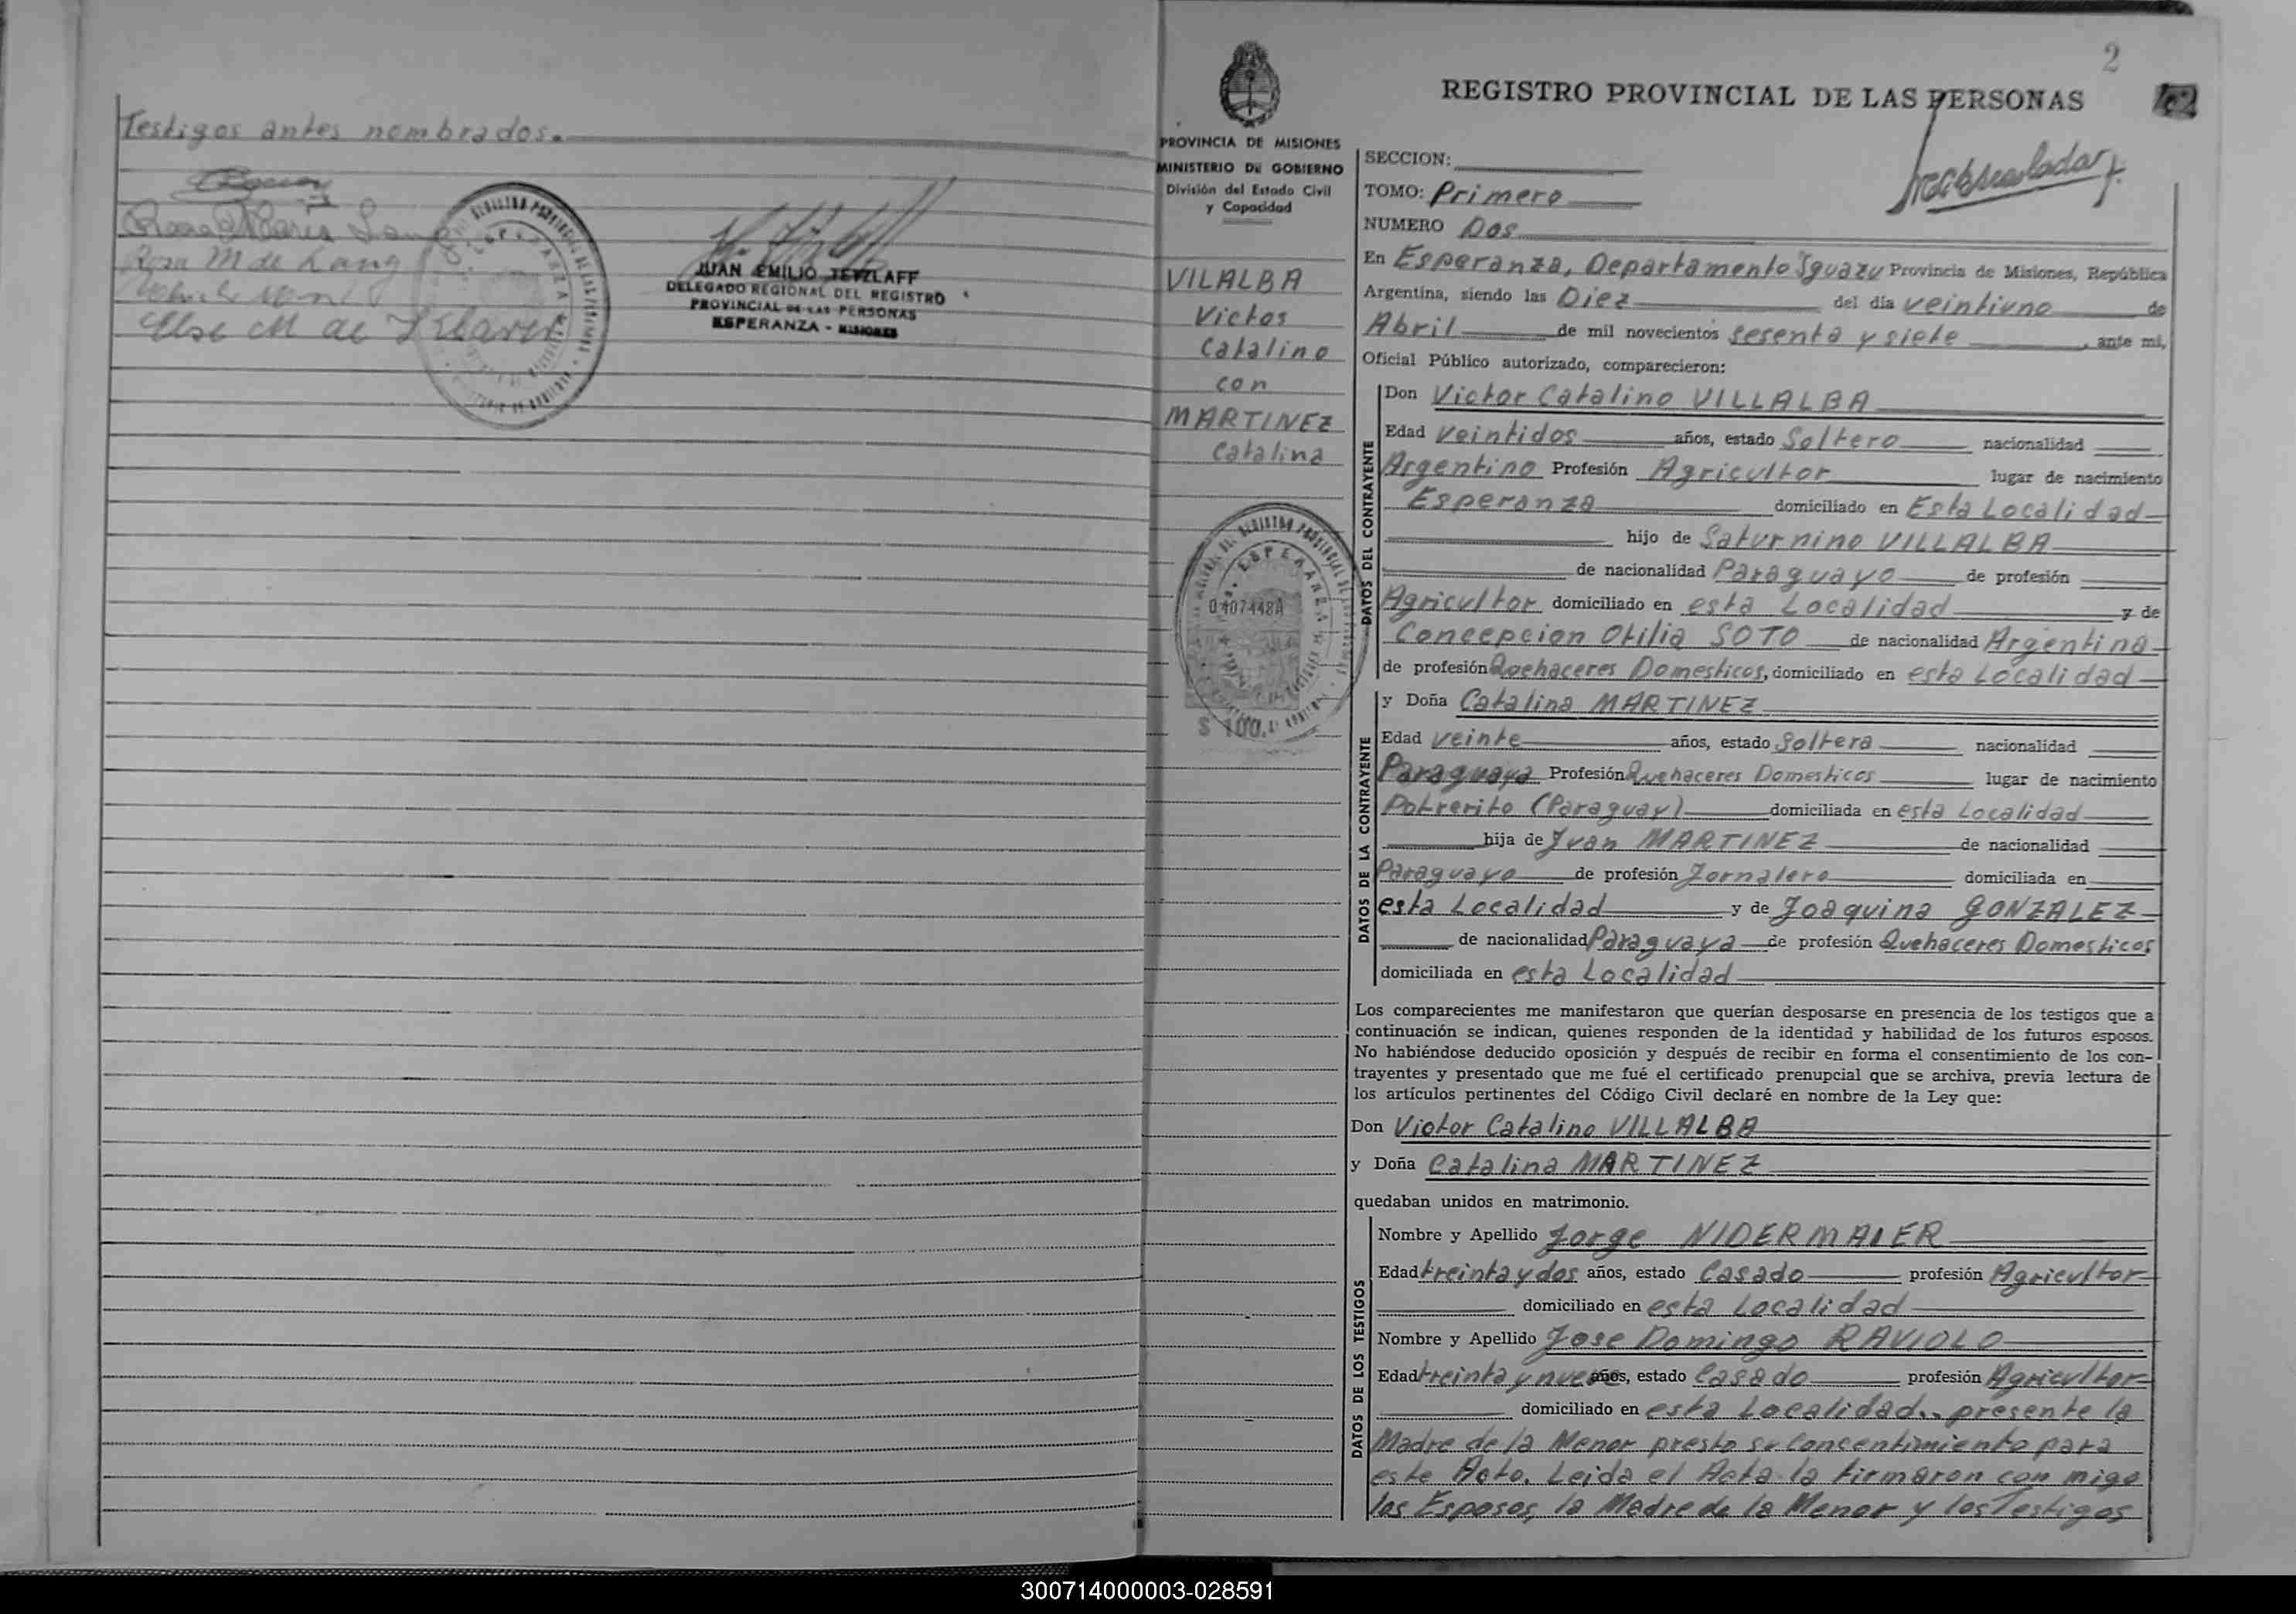 Testigos antes nombrados.
Rosa Maria Lang
Rosa M de Lang
Else M de
JUAN EMILIO TETZLAFF
DELEGADO REGIONAL DEL REGISTRO
PROVINCIAL DE LAS PERSONAS
ESPERANZA - MISIONES
2
REGISTRO PROVINCIAL DE LAS PERSONAS
PROVINCIA DE MISIONES
MINISTERIO DE GOBIERNO
División del Estado Civil
y Capacidad
VILALBA
Victos
Catalino
con
MARTINEZ
Catalina
ESPERANZA
0407448A
$ 100.
SECCION:
TOMO: Primero
NUMERO Dos
En Esperanza, Departamento Iguazu Provincia de Misiones, República
Argentina, siendo las Diez del día veintiuno de
Abril de mil novecientos sesenta y siete, ante mi,
Oficial Público autorizado, comparecieron:
DATOS DEL CONTRAYENTE
Don Victor Catalino VILLALBA
Edad veintidos años, estado Soltero nacionalidad
Argentino Profesión Agricultor lugar de nacimiento
Esperanza domiciliado en Esta Localidad
hijo de Saturnino VILLALBA
de nacionalidad Paraguayo de profesión
Agricultor domiciliado en esta Localidad y de
Concepcion Otilia SOTO de nacionalidad Argentina
de profesión Quehaceres Domesticos, domiciliado en esta Localidad
DATOS DE LA CONTRAYENTE
y Doña Catalina MARTINEZ
Edad veinte años, estado Soltera nacionalidad
Paraguaya Profesión Quehaceres Domesticos lugar de nacimiento
Potrerito (Paraguay) domiciliada en esta Localidad
hija de Juan MARTINEZ de nacionalidad
Paraguayo de profesión Jornalero domiciliada en
esta Localidad y de Joaquina GONZALEZ
de nacionalidad Paraguaya de profesión Quehaceres Domesticos
domiciliada en esta Localidad
Los comparecientes me manifestaron que querían desposarse en presencia de los testigos que a
continuación se indican, quienes responden de la identidad y habilidad de los futuros esposos.
No habiéndose deducido oposición y después de recibir en forma el consentimiento de los con-
trayentes y presentado que me fué el certificado prenupcial que se archiva, previa lectura de
los artículos pertinentes del Código Civil declaré en nombre de la Ley que:
Don Victor Catalino VILLALBA
y Doña Catalina MARTINEZ
quedaban unidos en matrimonio.
DATOS DE LOS TESTIGOS
Nombre y Apellido Jorge NIDERMAIER
Edad treinta y dos años, estado Casado profesión Agricultor
domiciliado en esta Localidad
Nombre y Apellido Jose Domingo RAVIOLO
Edad treinta y nueve años, estado Casado profesión Agricultor
domiciliado en esta Localidad.. presente la
Madre de la Menor presto su Concentimiento para
este Acto. Leida el Acta la firmaron con migo
los Esposos, la Madre de la Menor y los Testigos
300714000003-028591